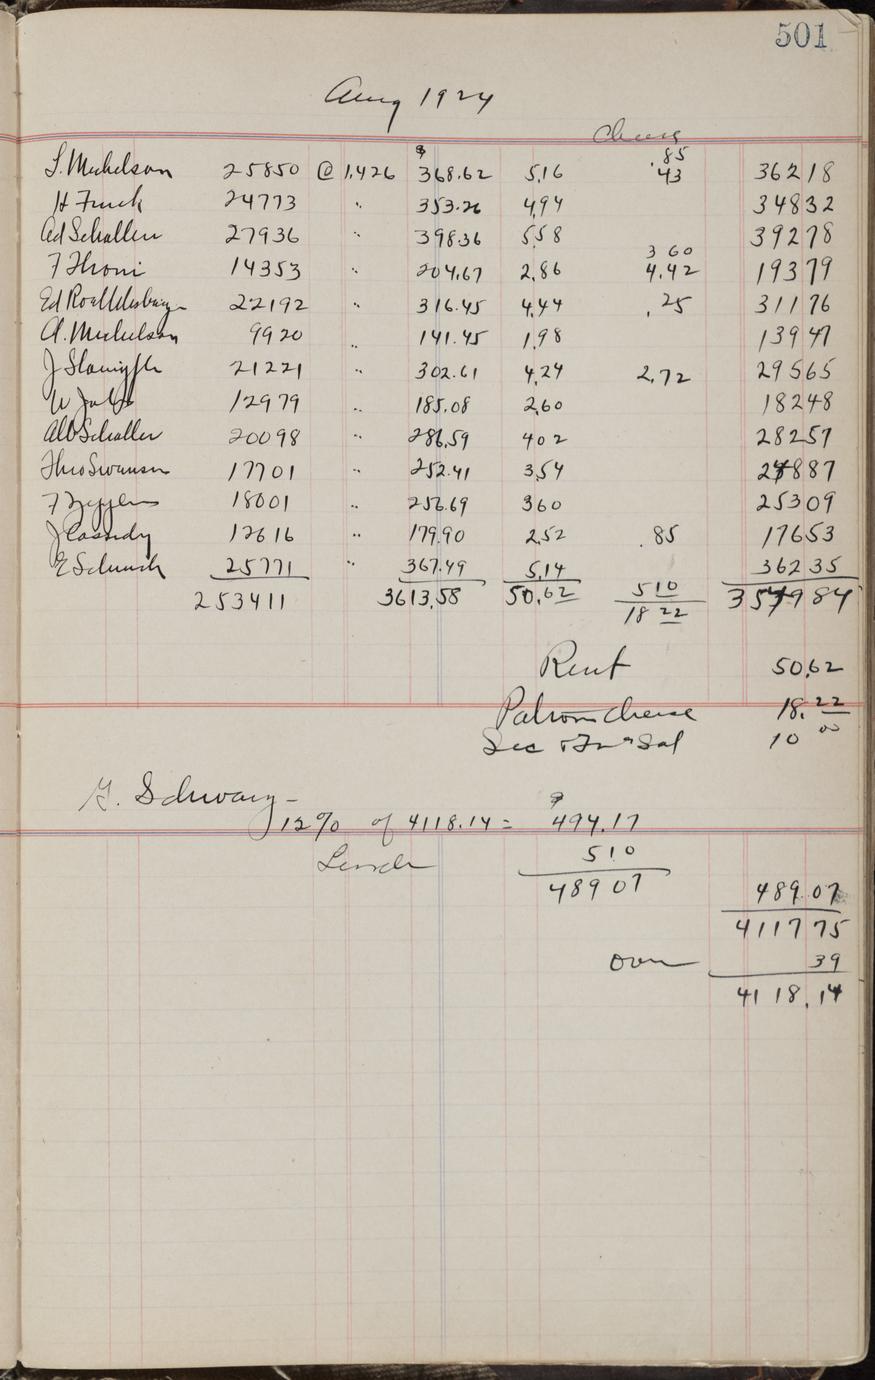 501
Aug 1924
Cheese
.85
L. Michelson 25850 @ 1,426 $368.62 5,16 .43 36218
H Funk 24773 " 353.26 4,94 34832
Ad Schaller 27936 " 398.36 5,58 39278
3 60
F Thoni 14353 " 204.67 2,86 4,42 19379
Ed 22192 " 316.45 4,44 .25 31176
A. Michelson 9920 " 141.45 1,98 13947
J 21221 " 302.61 4,24 2,72 29565
W 12979 " 185.08 2,60 18248
Alb Schaller 20098 " 286,59 402 28257
Theo Swanson 17701 " 252.41 3,54 24887
F 18001 " 256.69 360 25309
J Cassidy 12616 " 179.90 2,52 .85 17653
E Schunk 25771 " 367.49 5,14 36235
253411 3613,58 50,62 510 357984
18 22
Rent 50,62
Patrons cheese 18.22
Sec & Trs Sal 10 00
G. Schwarz -
12% of 4118.14 = $494.17
510
48907 489.07
411775
over 39
4118.14